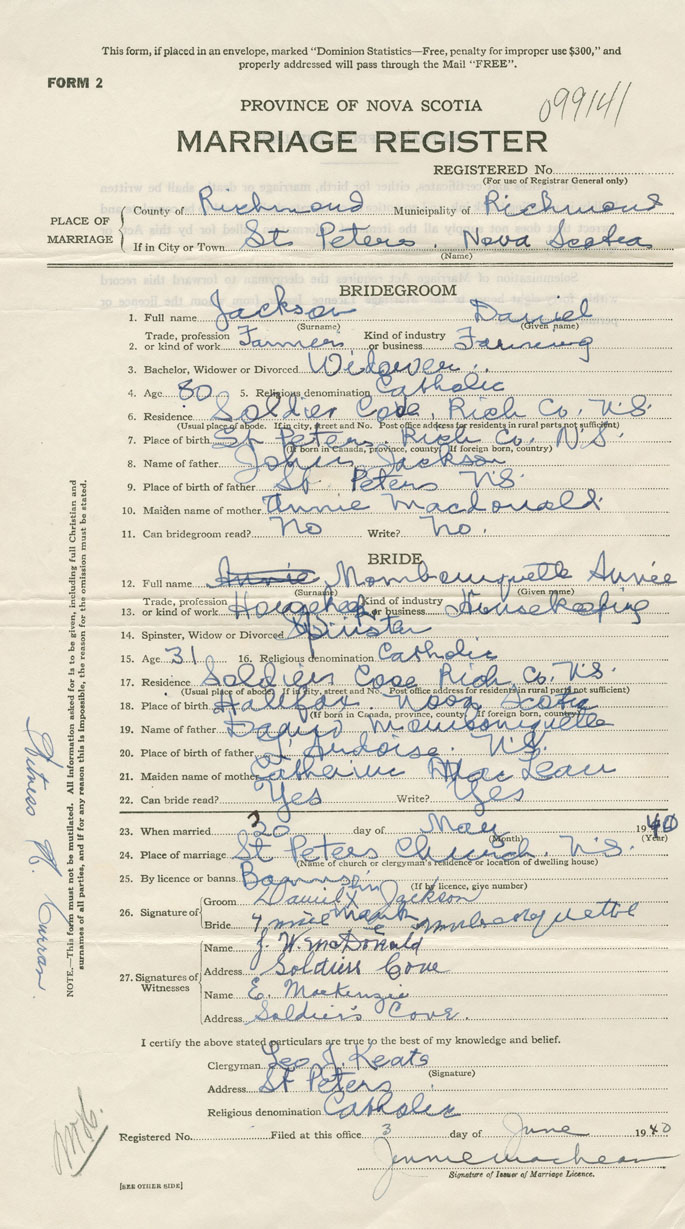 This form, if placed in an envelope, marked "Dominion Statistics—Free, penalty for improper use $300," and
properly addressed will pass through the Mail "FREE".
FORM 2
099141
PROVINCE OF NOVA SCOTIA
MARRIAGE REGISTER
REGISTERED No.
(For use of Registrar General only)
PLACE OF MARRIAGE
County of Richmond Municipality of Richmond
If in City or Town St Peters Nova Scotia
(Name)
BRIDEGROOM
1. Full name Jackson Daniel
(Surname) (Given name)
2. Trade, profession or kind of work Farmer Kind of industry or business Farming
3. Bachelor, Widower or Divorced Widower
4. Age 80 5. Religious denomination Catholic
6. Residence Soldier Cove, Rich Co. N.S.
(Usual place of abode. If in city, street and No. Post office address for residents in rural parts not sufficient)
7. Place of birth St Peters Rich Co, N.S.
(If born in Canada, province, county. If foreign born, country)
8. Name of father John Jackson
9. Place of birth of father St Peters N.S.
10. Maiden name of mother Annie Macdonald
11. Can bridegroom read? No Write? No.
BRIDE
12. Full name Annie Mombourquette Annie
(Surname) (Given name)
13. Trade, profession or kind of work Kind of industry or business Housekeeping
14. Spinster, Widow or Divorced Spinster
15. Age 31 16. Religious denomination Catholic
17. Residence Soldiers Cove Rich Co. N.S.
(Usual place of abode. If in city, street and No. Post office address for residents in rural parts not sufficient)
18. Place of birth Halifax Nova Scotia
(If born in Canada, province, county. If foreign born, country)
19. Name of father Mombourquette
20. Place of birth of father L'Ardoise. N.S.
21. Maiden name of mother Catherine MacLean
22. Can bride read? Yes Write? Yes
23. When married 30 day of May 1940
(Month) (Year)
24. Place of marriage St Peters Church, N.S.
(Name of church or clergyman's residence or location of dwelling house)
25. By licence or banns
(If by licence, give number)
26. Signature of
Groom Daniel X Jackson
Bride Annie Mombourquette
27. Signatures of Witnesses
Name J. W. McDonald
Address Soldiers Cove
Name E. MacKenzie
Address Soldier's Cove.
I certify the above stated particulars are true to the best of my knowledge and belief.
Clergyman Leo J. Keats
(Signature)
Address St Peters
Religious denomination Catholic
Registered No. Filed at this office 3 day of June 1940
Jennie MacLean
Signature of Issuer of Marriage Licence.
[SEE OTHER SIDE]
NOTE.—This form must not be mutilated. All information asked for is to be given, including full Christian and
surnames of all parties, and if for any reason this is impossible, the reason for the omission must be stated.
Witness N. Curran.